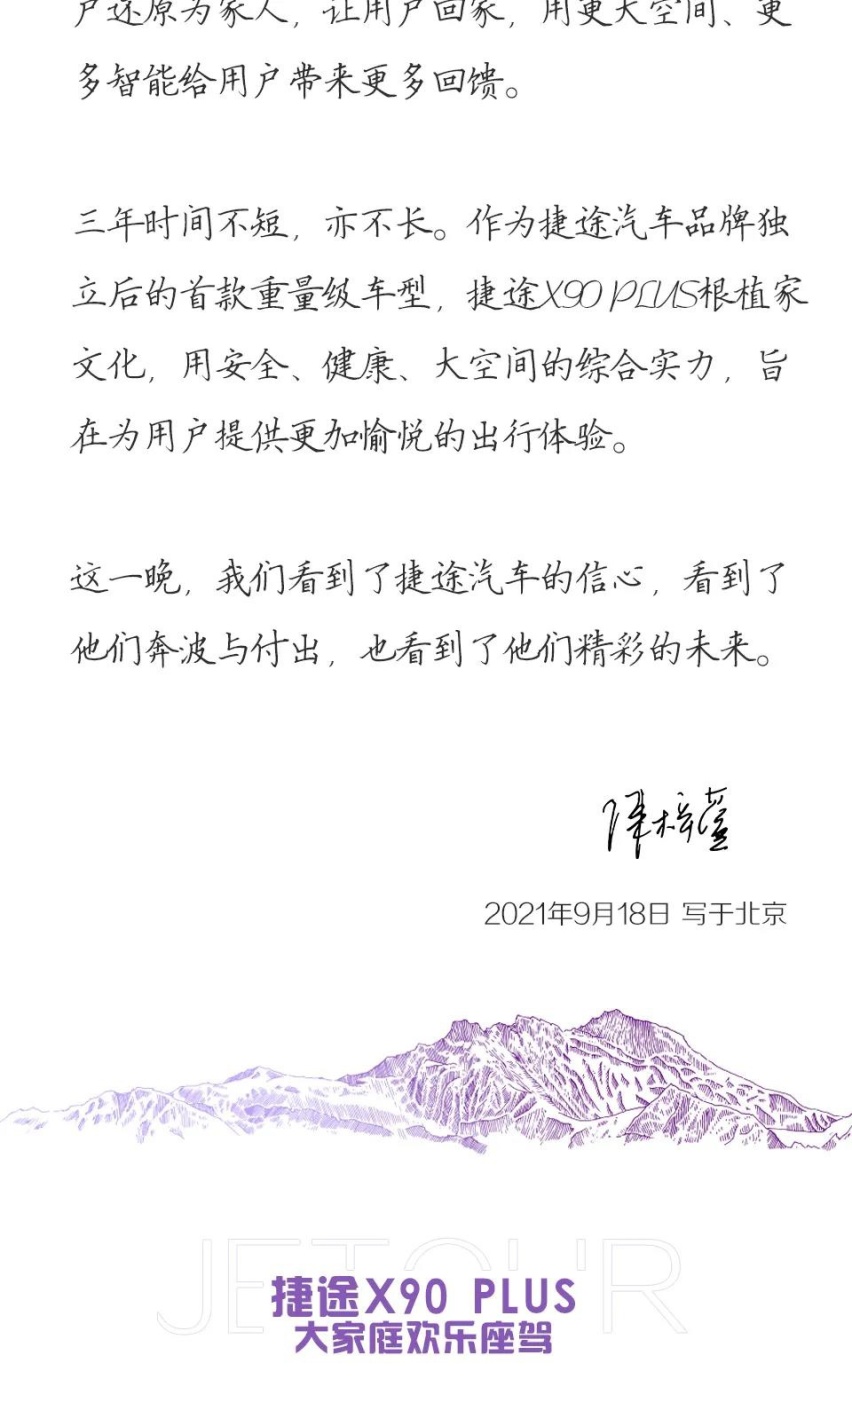 户还原为家人，让用户回家，用更大空间、更
多智能给用户带来更多回馈。
三年时间不短，亦不长。作为捷途汽车品牌独
立后的首款重量级车型，捷途X90 PLUS根植家
文化，用安全、健康、大空间的综合实力，旨
在为用户提供更加愉悦的出行体验。
这一晚，我们看到了捷途汽车的信心，看到了
他们奔波与付出，也看到了他们精彩的未来。
2021年9月18日 写于北京
JETOUR
捷途X90 PLUS
大家庭欢乐座驾